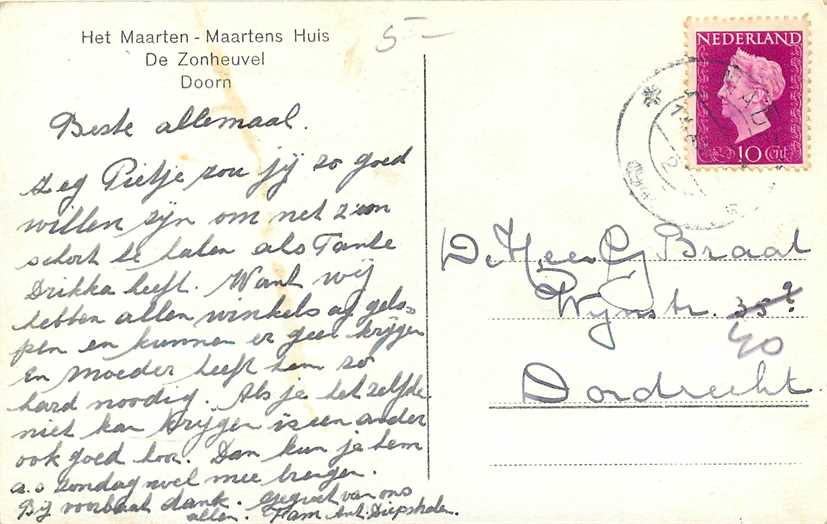 Het Maarten - Maartens Huis
De Zonheuvel
Doorn
5-
Beste allemaal.
zeg Pietje zou jij zo goed
willen zijn om net z'en
schort te halen als Tante
Drikka heeft. Want wij
hebben allen winkels af gelo-
pen en kunnen er geen krijgen
En Moeder heeft hem zo
hard noodig. Als je hetzelfde
niet kan krijgen is een ander
ook goed hoor. Dan kun je hem
a.s zondag wel mee brengen.
Bij voorbaat dank. gegroet van ons
allen. Fam Ant. Diepstraten.
NEDERLAND
10 Cnt
De Heer G Braat
Wijnstr. 35?
40
Dordrecht